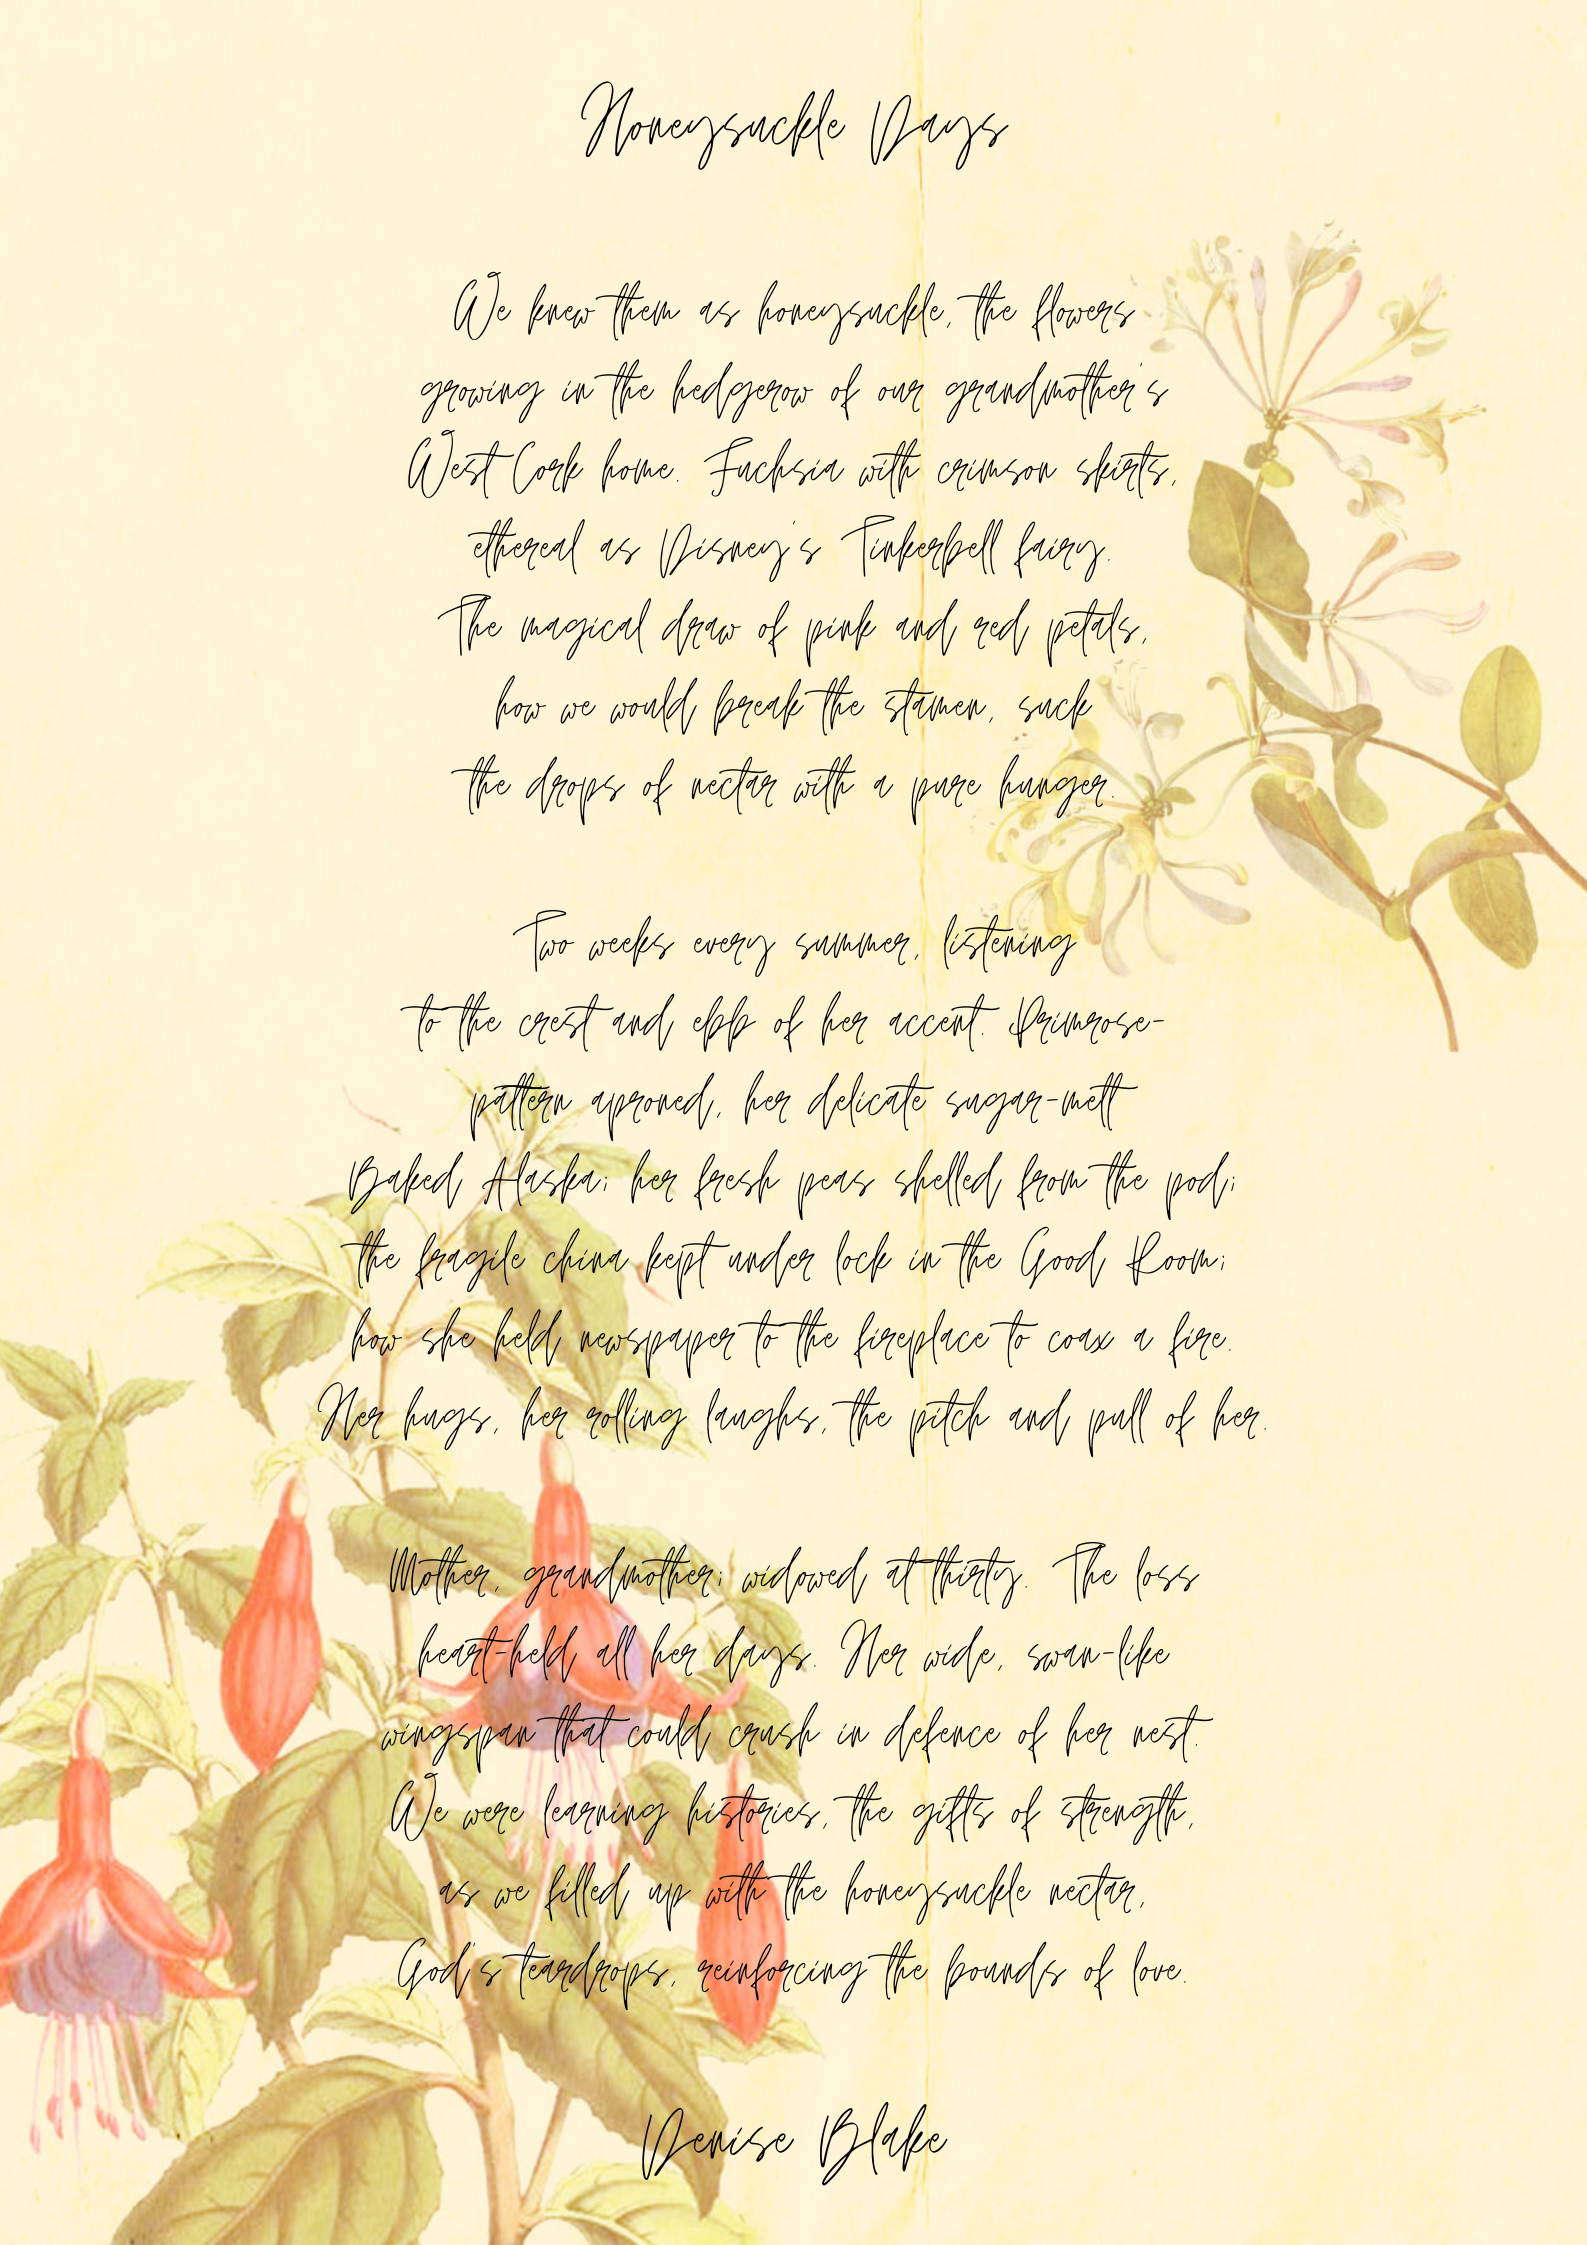 Honeysuckle Days
We knew them as honeysuckle, the flowers
growing in the hedgerow of our grandmother's
West Cork home. Fuchsia with crimson skirts,
ethereal as Disney's Tinkerbell fairy.
The magical draw of pink and red petals,
how we would break the stamen, suck
the drops of nectar with a pure hunger.
Two weeks every summer, listening
to the crest and ebb of her accent. Primrose-
pattern aproned, her delicate sugar-melt
Baked Alaska; her fresh peas shelled from the pod;
the fragile china kept under lock in the Good Room;
how she held newspaper to the fireplace to coax a fire.
Her hugs, her rolling laughs, the pitch and pull of her.
Mother, grandmother; widowed at thirty. The loss
heart-held all her days. Her wide, swan-like
wingspan that could crush in defence of her nest.
We were learning histories, the gifts of strength,
as we filled up with the honeysuckle nectar,
God's teardrops, reinforcing the bounds of love.
Denise Blake